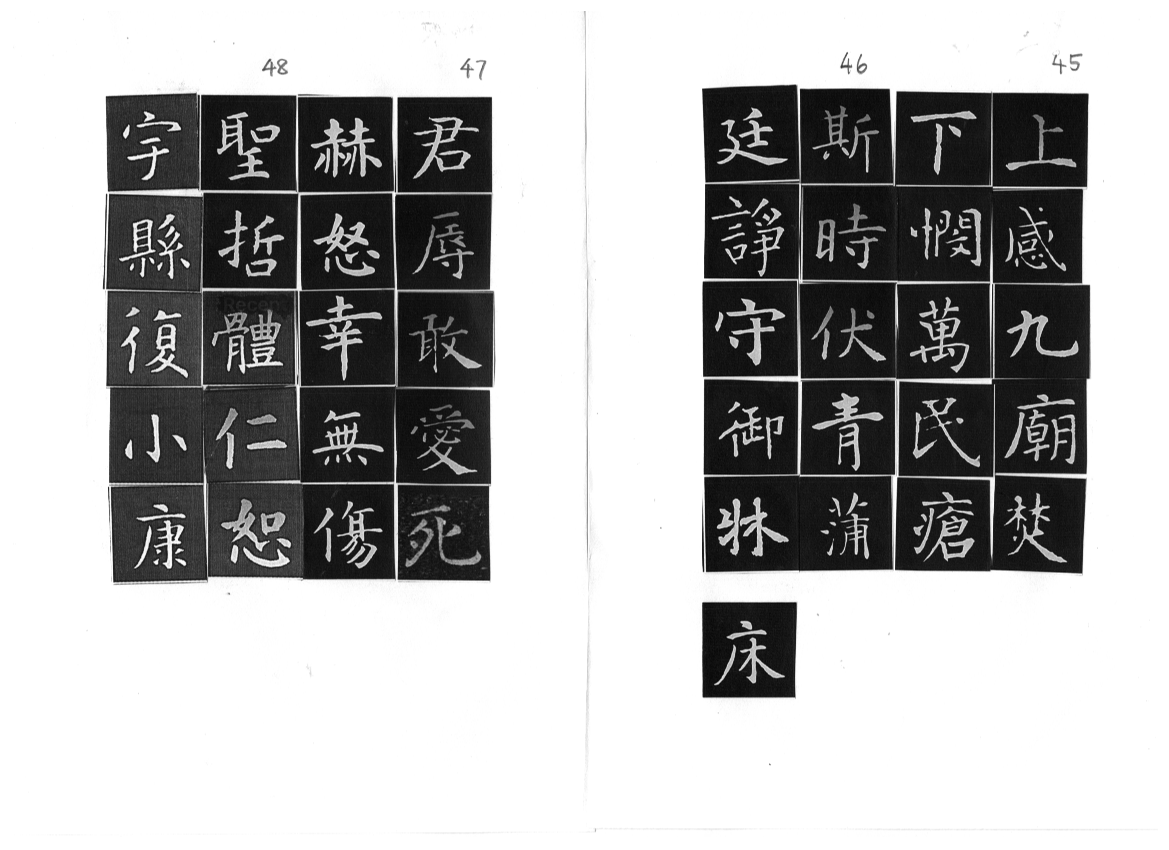 45
上感九廟焚
下憫萬民瘡
46
斯時伏青蒲
廷諍守御牀
床
47
君辱敢愛死
赫怒幸無傷
48
聖哲體仁恕
宇縣復小康